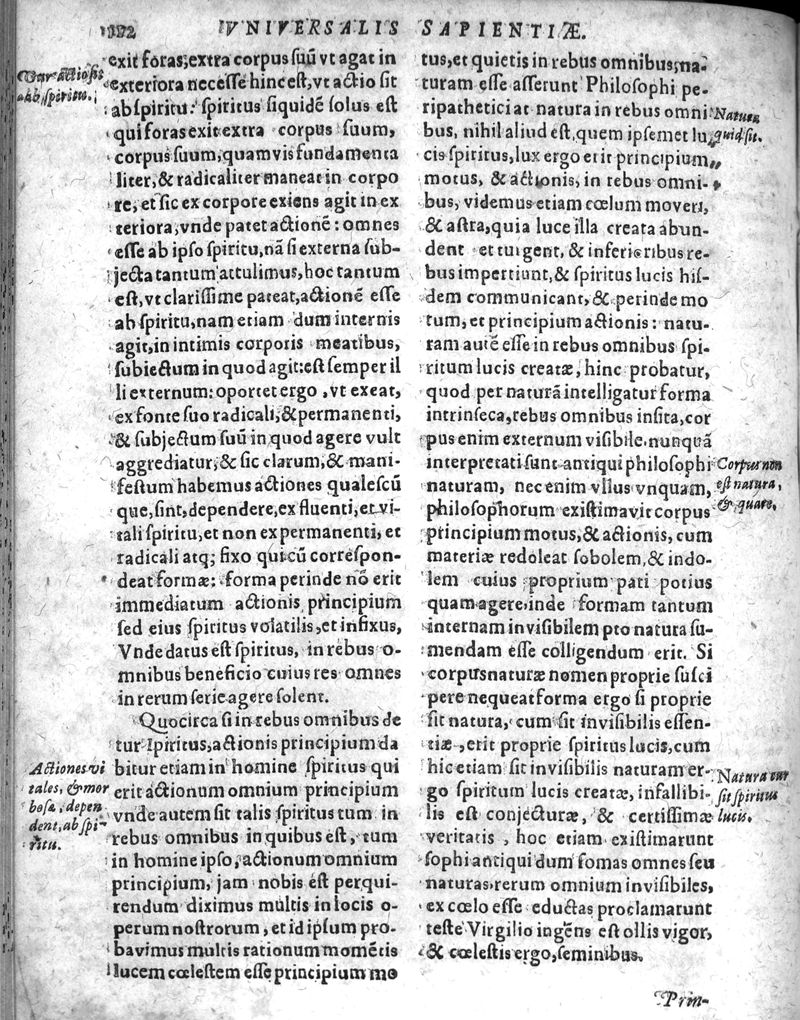 VNIVERSALIS SAPIENTIÆ.
exit foras, extra corpus suũ vt agat in
exteriora necesse hinc est, vt actio sit
ab spiritu: spiritus siquidẽ solus est
qui foras exit extra corpus suum,
corpus suum, quamvis fundamenta
liter, & radicaliter maneat in corpo
re, et sic ex corpore exiens agit in ex
teriora, vnde patet actionẽ: omnes
esse ab ipso spiritu, nã si externa sub-
jecta tantum attulimus, hoc tantum
est, vt clarissime pateat, actionẽ esse
ab spiritu, nam etiam dum internis
agit, in intimis corporis meatibus,
subiectum in quod agit: est semper il
li externum: oportet ergo, vt exeat,
ex fonte suo radicali, & permanenti,
& subjectum suũ in quod agere vult
aggrediatur, & sic clarum, & mani-
festum habemus actiones qualescũ
que, sint, dependere, ex fluenti, et vi-
tali spiritu, et non ex permanenti, et
radicali atq; fixo qui cũ correspon-
deat formæ: forma perinde nõ erit
immediatum actionis principium
sed eius spiritus volatilis, et infixus,
Vnde datus est spiritus, in rebus o-
mnibus beneficio cuius res omnes
in rerum serie agere solent.
Quocirca si in rebus omnibus de
tur spiritus, actionis principium da
bitur etiam in homine spiritus qui
erit actionum omnium principium
vnde autem sit talis spiritus tum in
rebus omnibus in quibus est, tum
in homine ipso, actionum omnium
principium, jam nobis est perqui-
rendum diximus multis in locis o-
perum nostrorum, et id ipsum pro-
bavimus multis rationum momẽtis
lucem cœlestem esse principium mo
ab spiritu.
Actiones vi
tales, & mor
bosæ, depen
dent, ab spi-
ritu.
tus, et quietis in rebus omnibus; na-
turam esse asserunt Philosophi pe-
ripathetici at natura in rebus omni
bus, nihil aliud est, quem ipsemet lu
cis spiritus, lux ergo erit principium
motus, & actionis, in rebus omni-
bus, videmus etiam cœlum moveri,
& astra, quia luce illa creata abun-
dent et turgent, & inferioribus re-
bus impertiunt, & spiritus lucis his-
dem communicant, & perinde mo
tum, et principium actionis: natu-
ram autẽ esse in rebus omnibus spi-
ritum lucis creatæ, hinc probatur,
quod per naturã intelligatur forma
intrinseca, rebus omnibus insita, cor
pus enim externum visibile nunquã
interpretati sunt antiqui philosophi
naturam, nec enim vllus vnquam,
philosophorum existimavit corpus
principium motus, & actionis, cum
materiæ redoleat sobolem, & indo-
lem cuius proprium pati potius
quam agere, inde formam tantum
internam invisibilem pro natura su-
mendam esse colligendum erit. Si
corpus naturæ nomen proprie susci
pere nequeat forma ergo si proprie
sit natura, cum sit invisibilis essen-
tiæ, erit proprie spiritus lucis, cum
hic etiam sit invisibilis naturam er-
go spiritum lucis creatæ, infallibi-
lis est conjecturæ, & certissimæ
veritatis, hoc etiam existimarunt
sophi antiqui dum fomas omnes seu
naturas rerum omnium invisibiles,
ex cœlo esse eductas proclamarunt
teste Virgilio ingẽns est ollis vigor,
& cœlestis ergo, seminibus.
Natura
quid sit.
Corpus non
est natura,
& quare.
Natura cur
sit spiritus
lucis.
Prin-